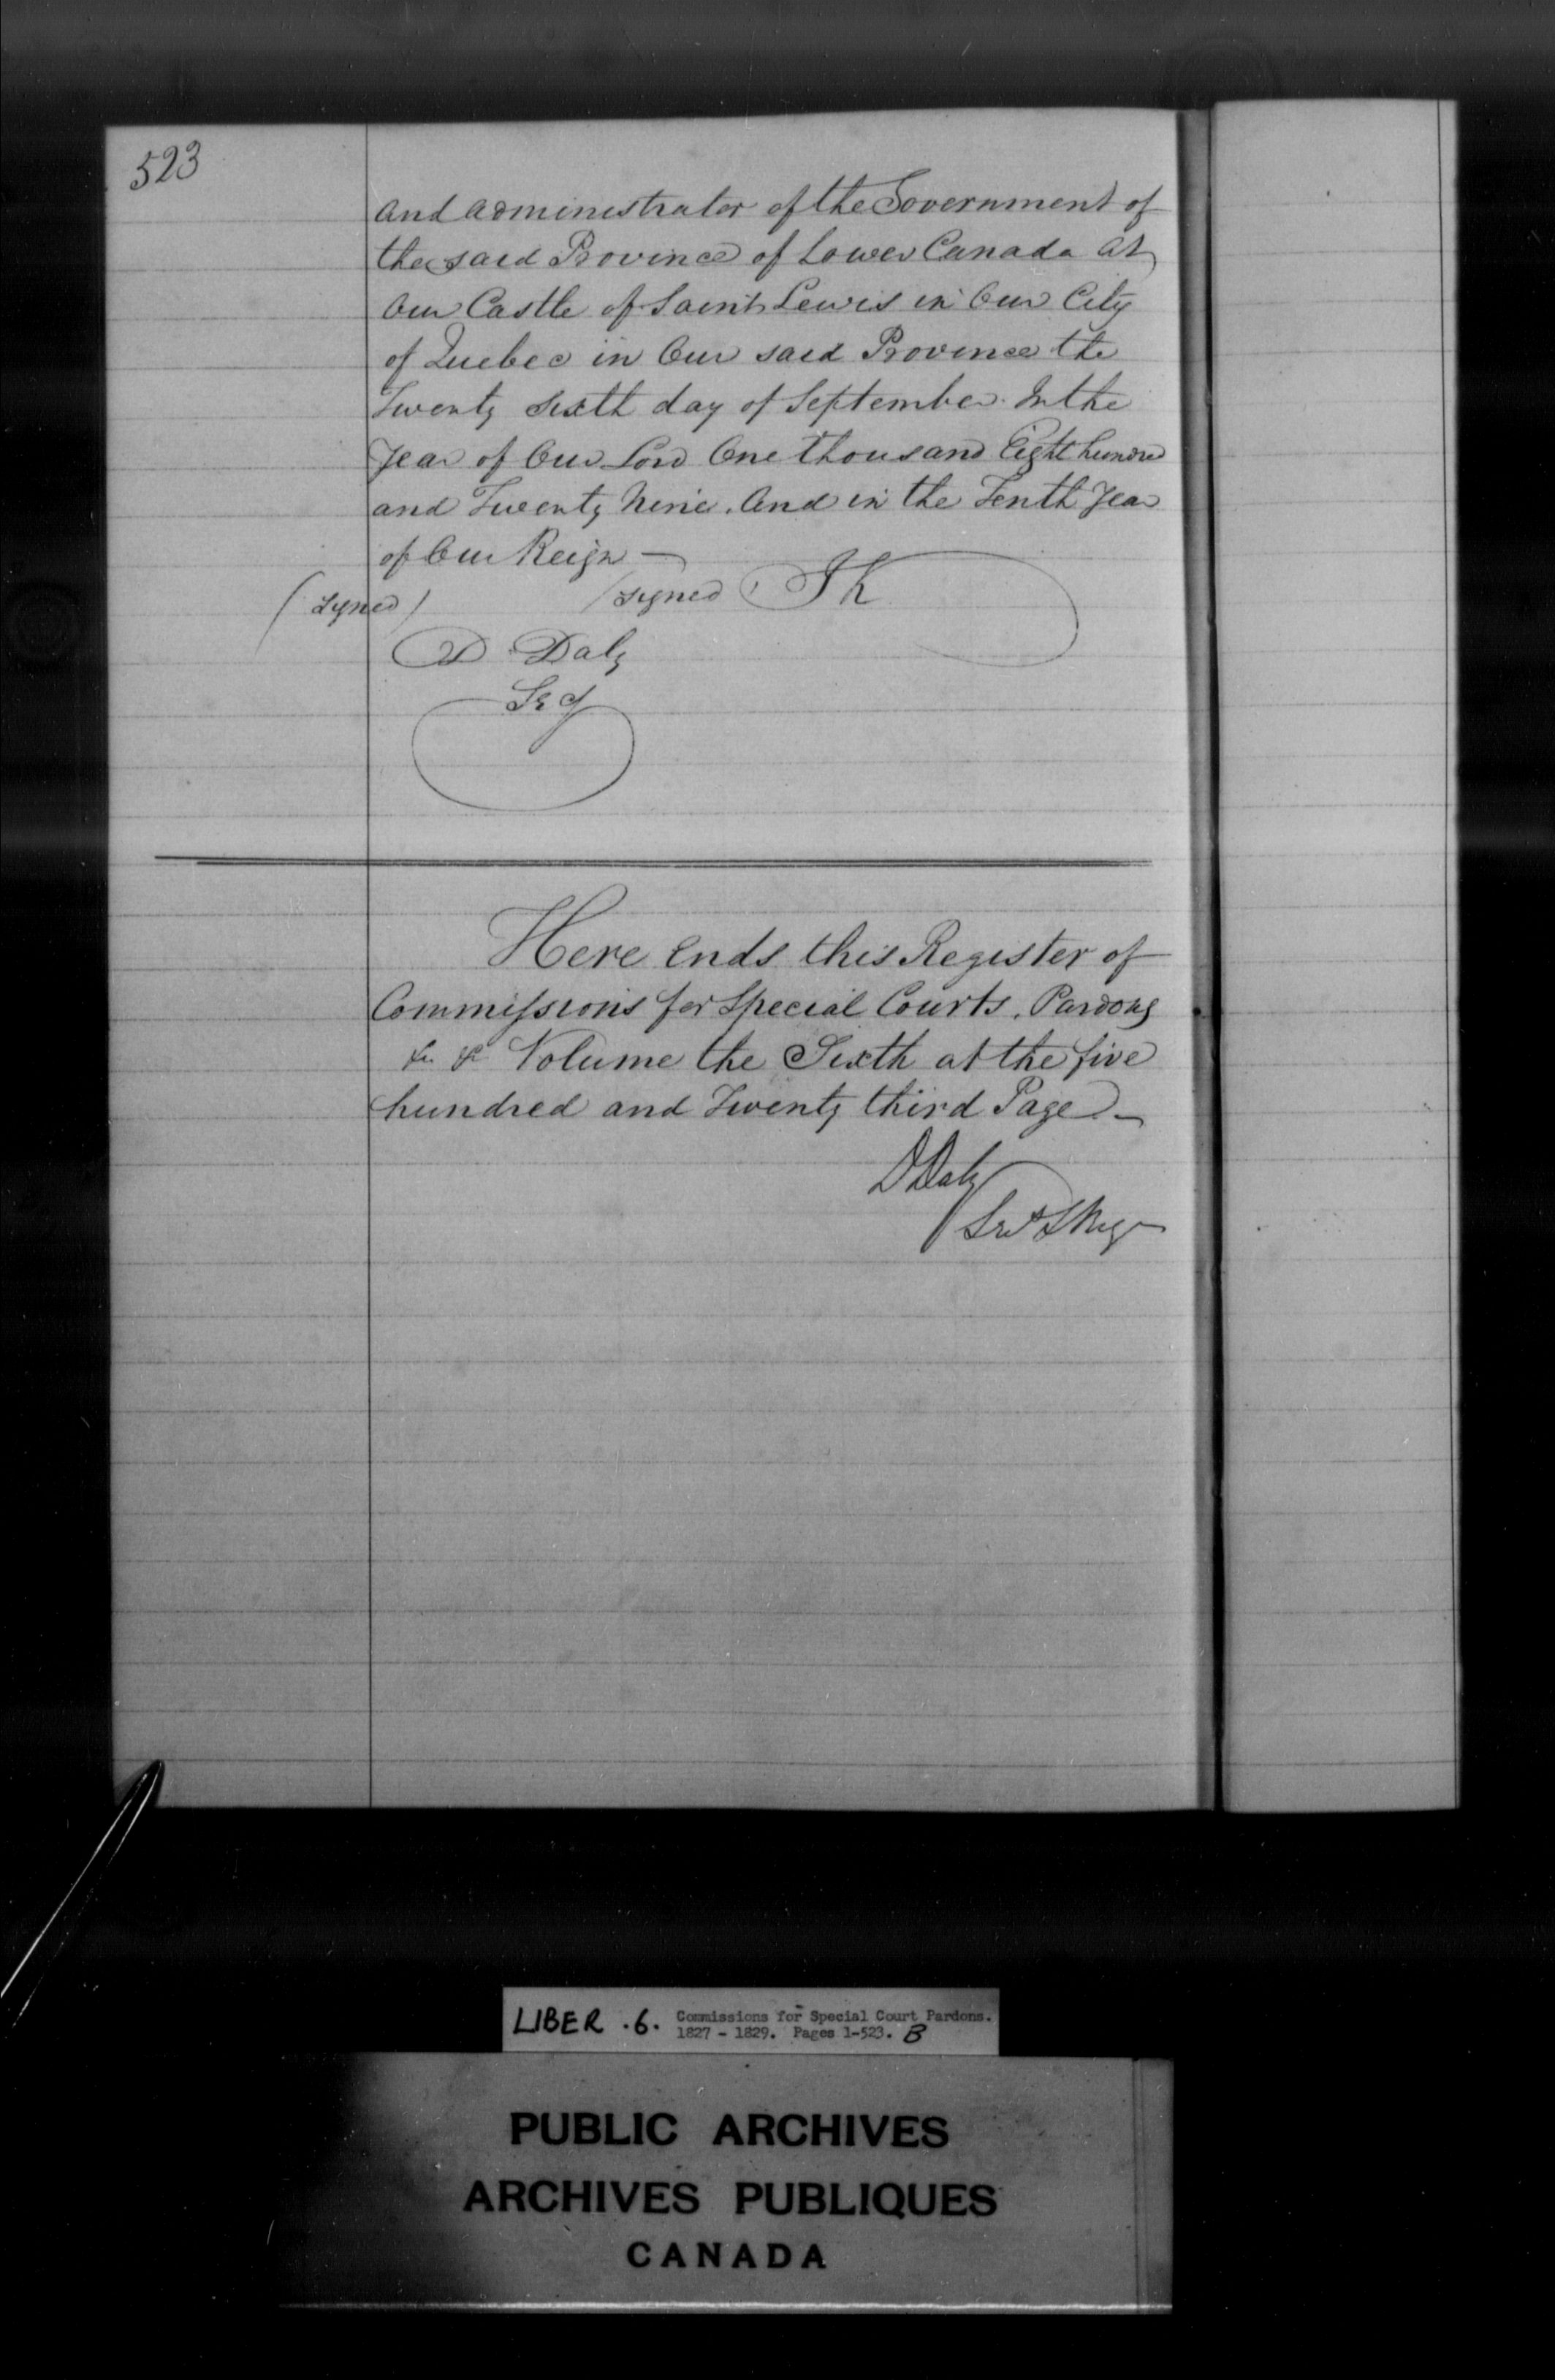 523
and administrator of the Government of
the said Province of Lower Canada at
Our Castle of Saint Lewis in Our City
of Quebec in Our said Province the
Twenty sixth day of September In the
Year of Our Lord One thousand Eight hundred
and Twenty Nine. And in the Tenth Year
of Our Reign —
(signed) (signed) JK
D Daly
Secy
Here Ends this Register of
Commissions for Special Courts, Pardons
&c &c Volume the Sixth at the five
hundred and Twenty third Page —
DDaly
LIBER .6. Commissions for Special Court Pardons.
1827 - 1829. Pages 1-523. B
PUBLIC ARCHIVES
ARCHIVES PUBLIQUES
CANADA